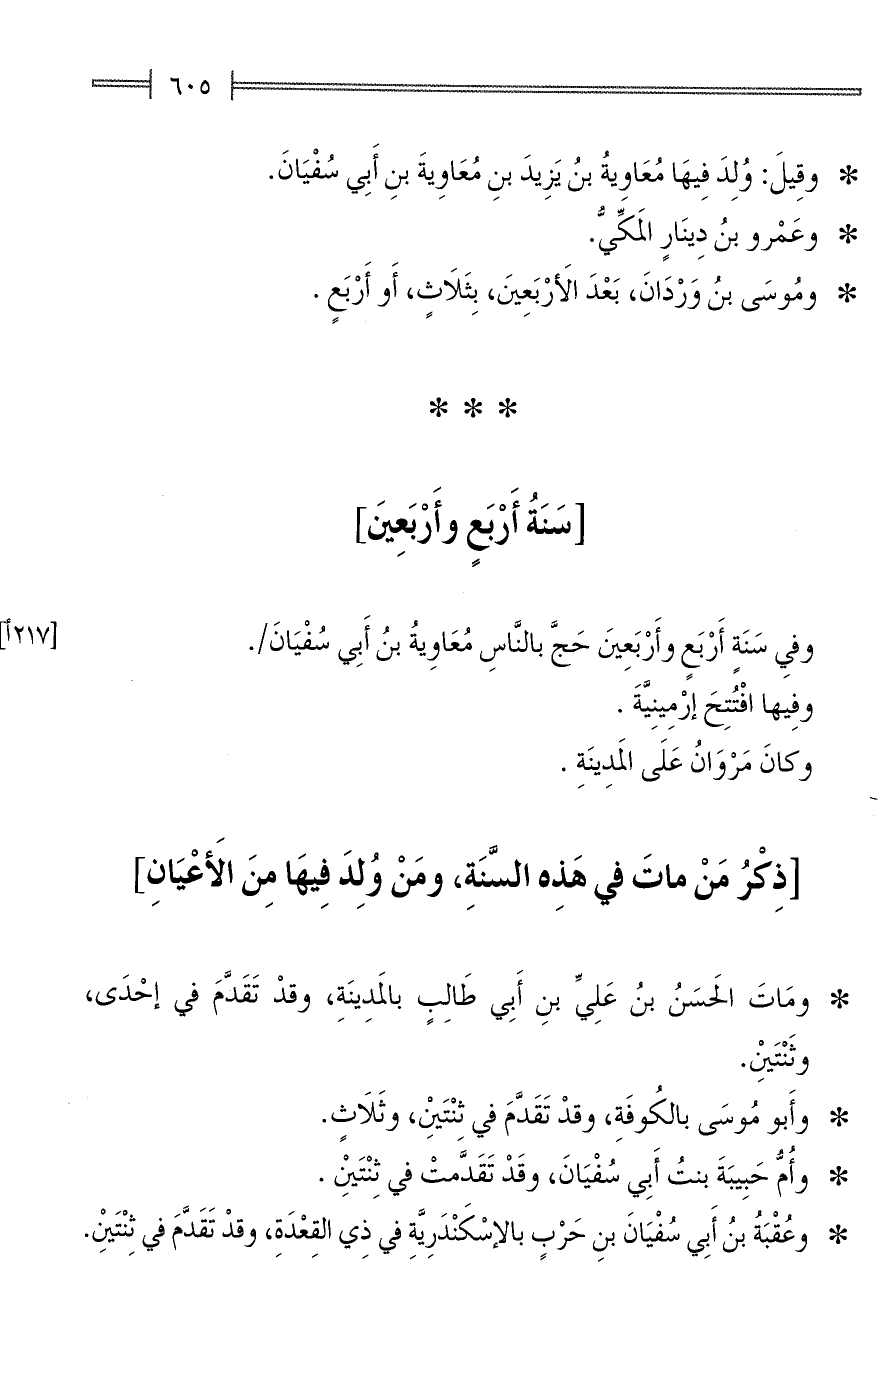 ٦٠٥
* وقِيلَ: وُلِدَ فِيهَا مُعَاوِيةُ بنُ يَزِيدَ بنِ مُعَاوِيةَ بنِ أَبِي سُفْيَانَ.
* وعَمْرو بنُ دِينَارٍ المَكِّيُّ.
* ومُوسَى بنُ وَرْدَانَ، بَعْدَ الأَرْبَعِينَ، بِثَلَاثٍ، أَو أَرْبَعٍ .
* * *
[سَنَةُ أَرْبَعٍ وأَرْبَعِينَ]
وفي سَنَةٍ أَرْبَعٍ وأَرْبَعِينَ حَجَّ بالنَّاسِ مُعَاوِيةُ بنُ أَبِي سُفْيَانَ/. [٢١٧أ]
وفِيها افْتُتِحَ إرْمِينِيَّةَ .
وكانَ مَرْوَانُ عَلَى المَدِينَةِ .
[ذِكْرُ مَنْ ماتَ في هَذِه السَّنَةِ، ومَنْ وُلِدَ فِيهَا مِنَ الأَعْيَانِ]
* ومَاتَ الحَسَنُ بنُ عَلِيِّ بنِ أَبِي طَالِبٍ بالمَدِينَةِ، وقدْ تَقَدَّمَ في إحْدَى،
وثَنْتَيْنْ.
* وأَبو مُوسَى بالكُوفَةِ، وقدْ تَقَدَّمَ في ثِنْتَيْنْ، وثَلَاثٍ.
* وأُمُّ حَبِيبَةَ بنتُ أَبي سُفْيَانَ، وقَدْ تَقَدَّمتْ في ثِنْتَيْنْ .
* وعُقْبَةُ بنُ أَبي سُفْيَانَ بنِ حَرْبٍ بالإسْكَنْدَرِيَّةِ في ذِي القِعْدَةِ، وقدْ تَقَدَّمَ في ثِنْتَيْنْ.